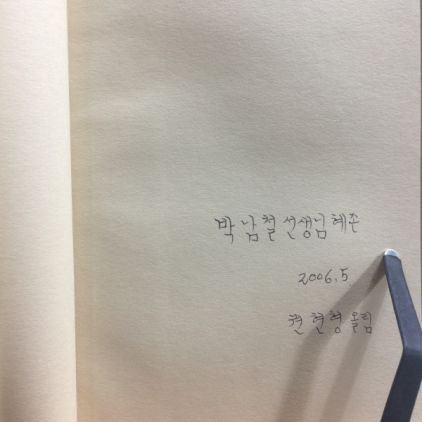 박남철 선생님 혜존
2006.5
권현형 올림